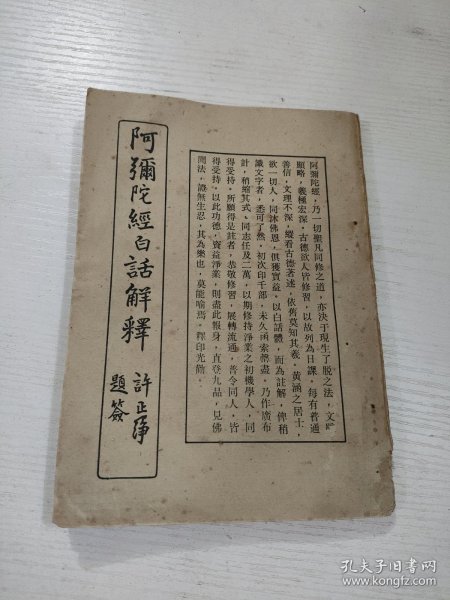 阿彌陀經。乃一切聖凡同修之道。亦決于現生了脫之法。文雖
顯略。義極宏深。古德欲人皆修習。以故列為日課。每有普通
善信。文理不深。縱看古德著述。依舊莫知其義。黃涵之居士。
欲一切人。同沐佛恩。俱獲實益。以白話體。而為註解。俾稍
識文字者。悉可了然。初次印千部。未久函索罄盡。乃作廣布
計。稍縮其式。同志任及二萬。以期修持淨業之初機學人。同
得受持。所願得是註者。恭敬修習。展轉流通。普令同人。皆
得受持。以此功德。資益淨業。則盡此報身。直登九品。見佛
聞法。證無生忍。其為樂也。莫能喻焉。釋印光勸。
阿彌陀經白話解釋
許止淨
題簽
孔夫子旧书网
www.kongfz.com